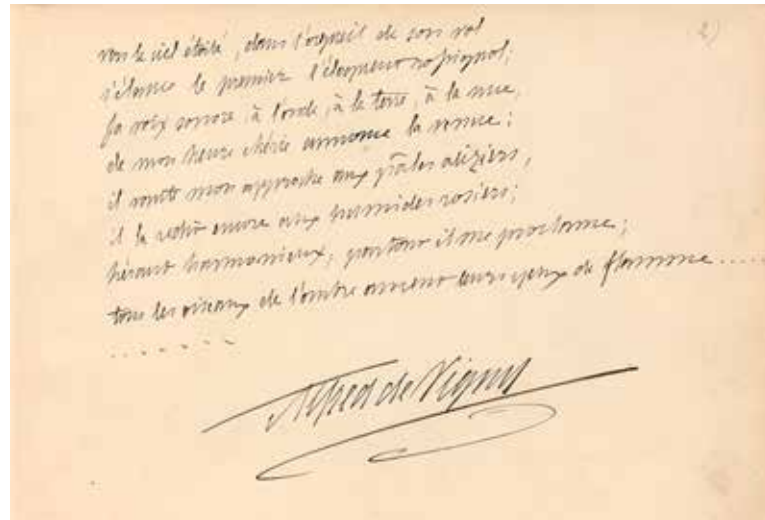 vers le ciel étoilé, dans l'orgueil de son vol
s'élance le premier l'éloquent rossignol;
sa voix sonore, à l'onde, à la terre, à la nue,
de mon heure chérie annonce la venue;
il vante mon approche aux pâles aliziers,
il la redit encore aux humides rosiers;
héraut harmonieux, partout il me proclame;
tous les oiseaux de l'ombre ouvrent leurs yeux de flamme.....
.......
Alfred de Vigny
2)